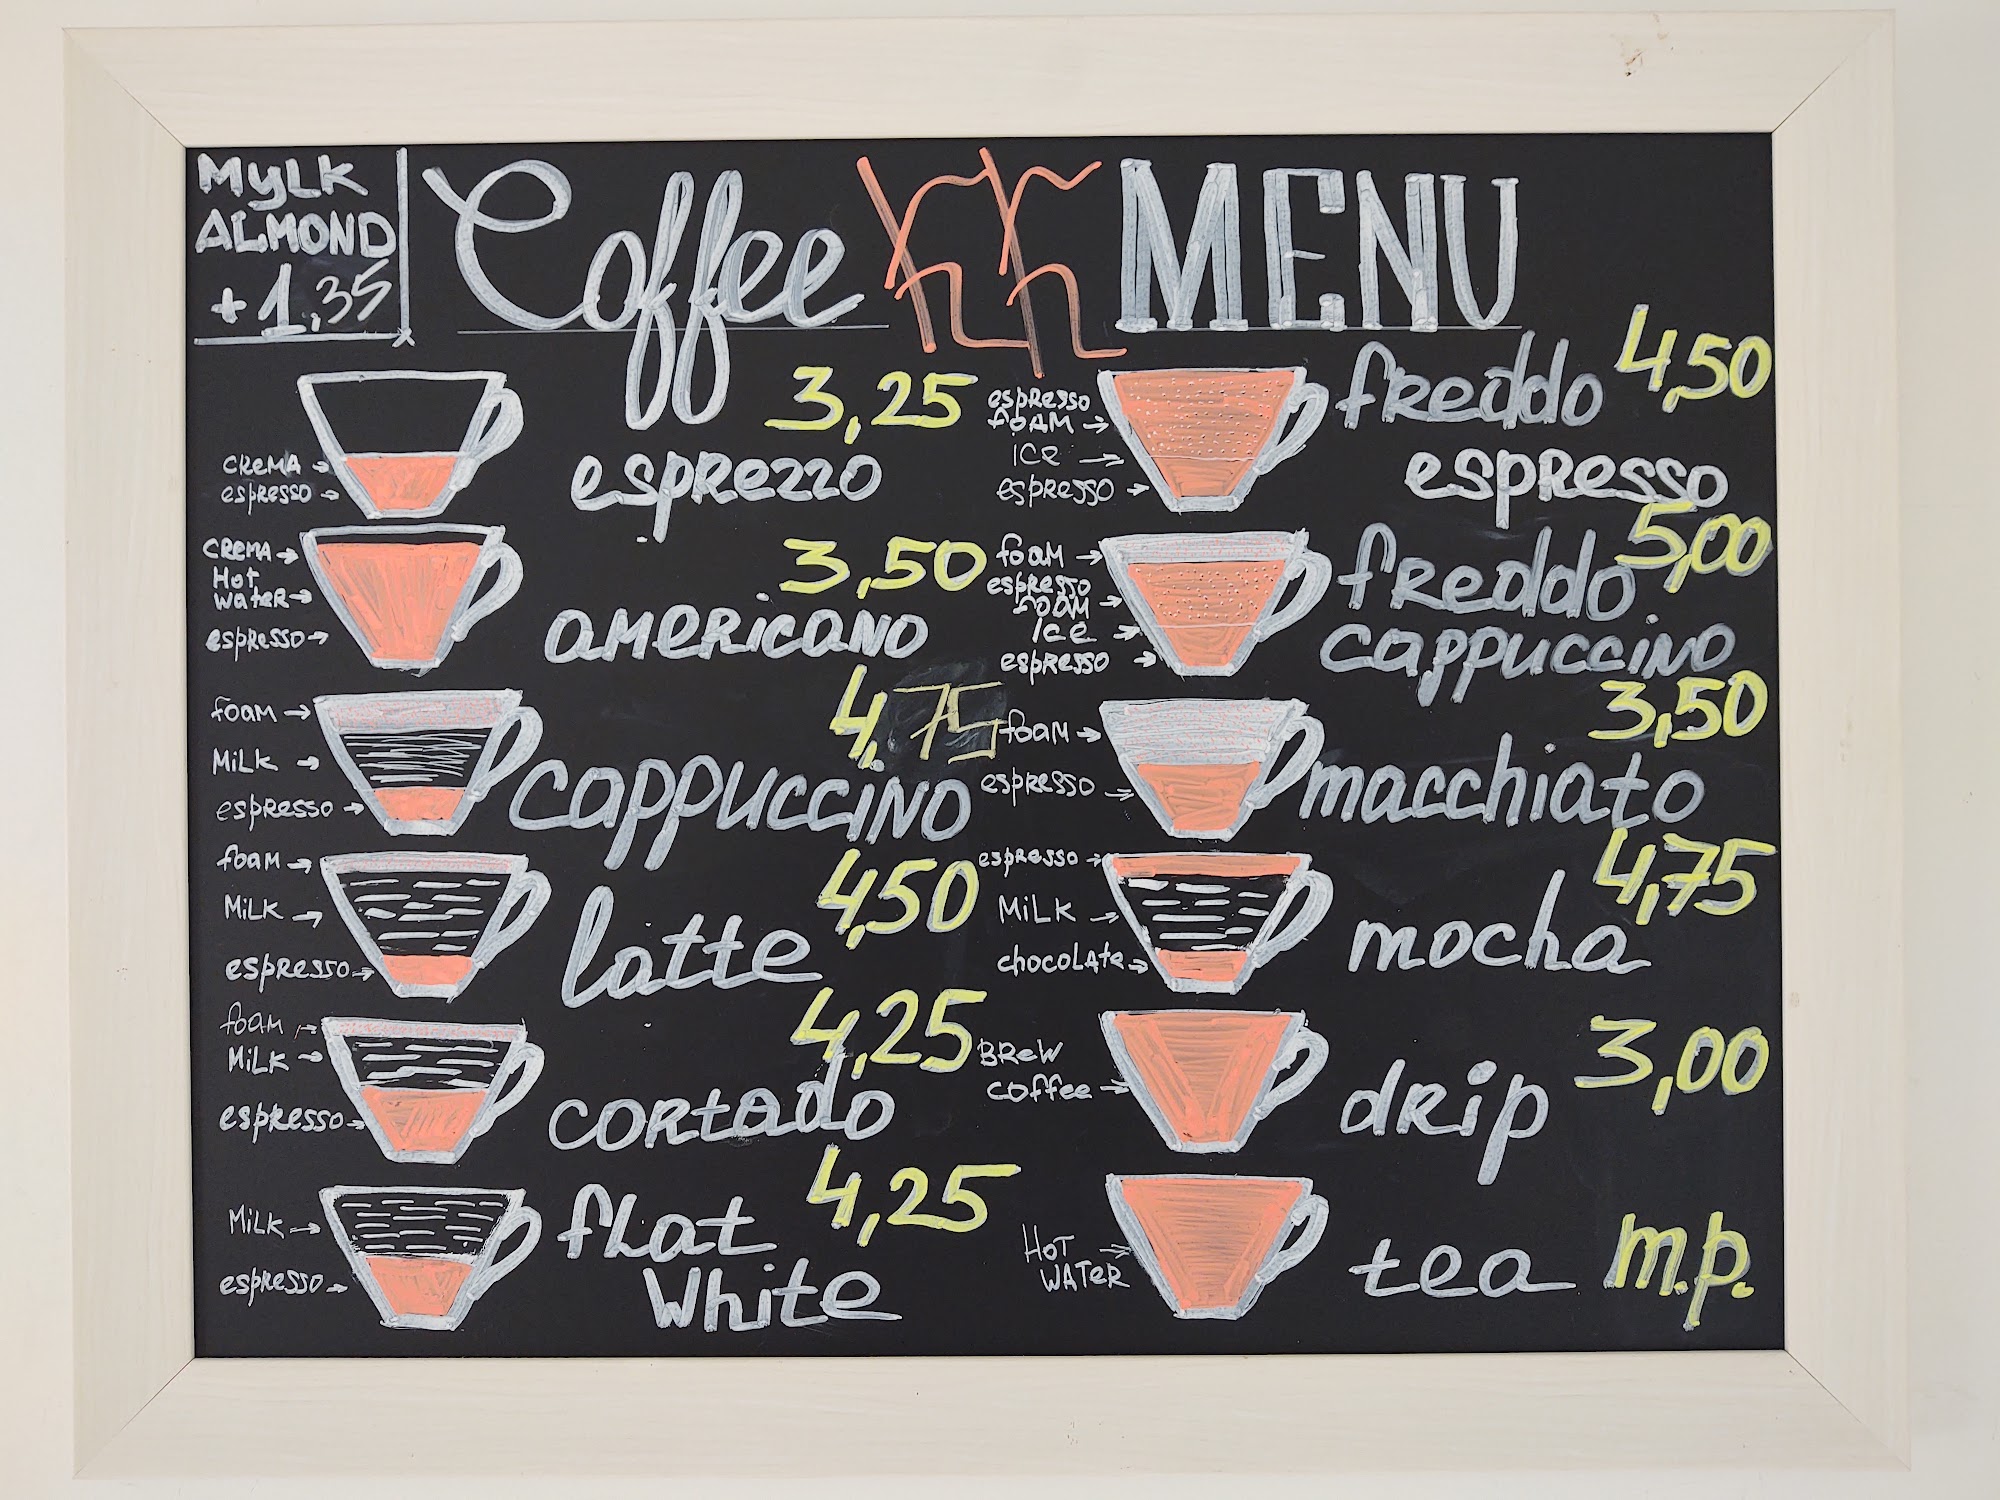 MyLK
ALMOND
+1,35
Coffee MENU
3,25
CREMA
espresso
esprezzo
3,50
CREMA
Hot
water
espresso
americano
4,75
foam
MiLK
espresso
cappuccino
4,50
foam
MiLK
espresso
latte
4,25
foam
MiLK
espresso
cortado
4,25
MiLK
espresso
flat
White
4,50
espresso
foam
ice
espresso
freddo
espresso
5,00
foam
espresso
foam
ice
espresso
freddo
cappuccino
3,50
foam
espresso
macchiato
4,75
espresso
MiLK
chocolate
mocha
3,00
BReW
coffee
drip
HOT
WATeR
tea m.p.